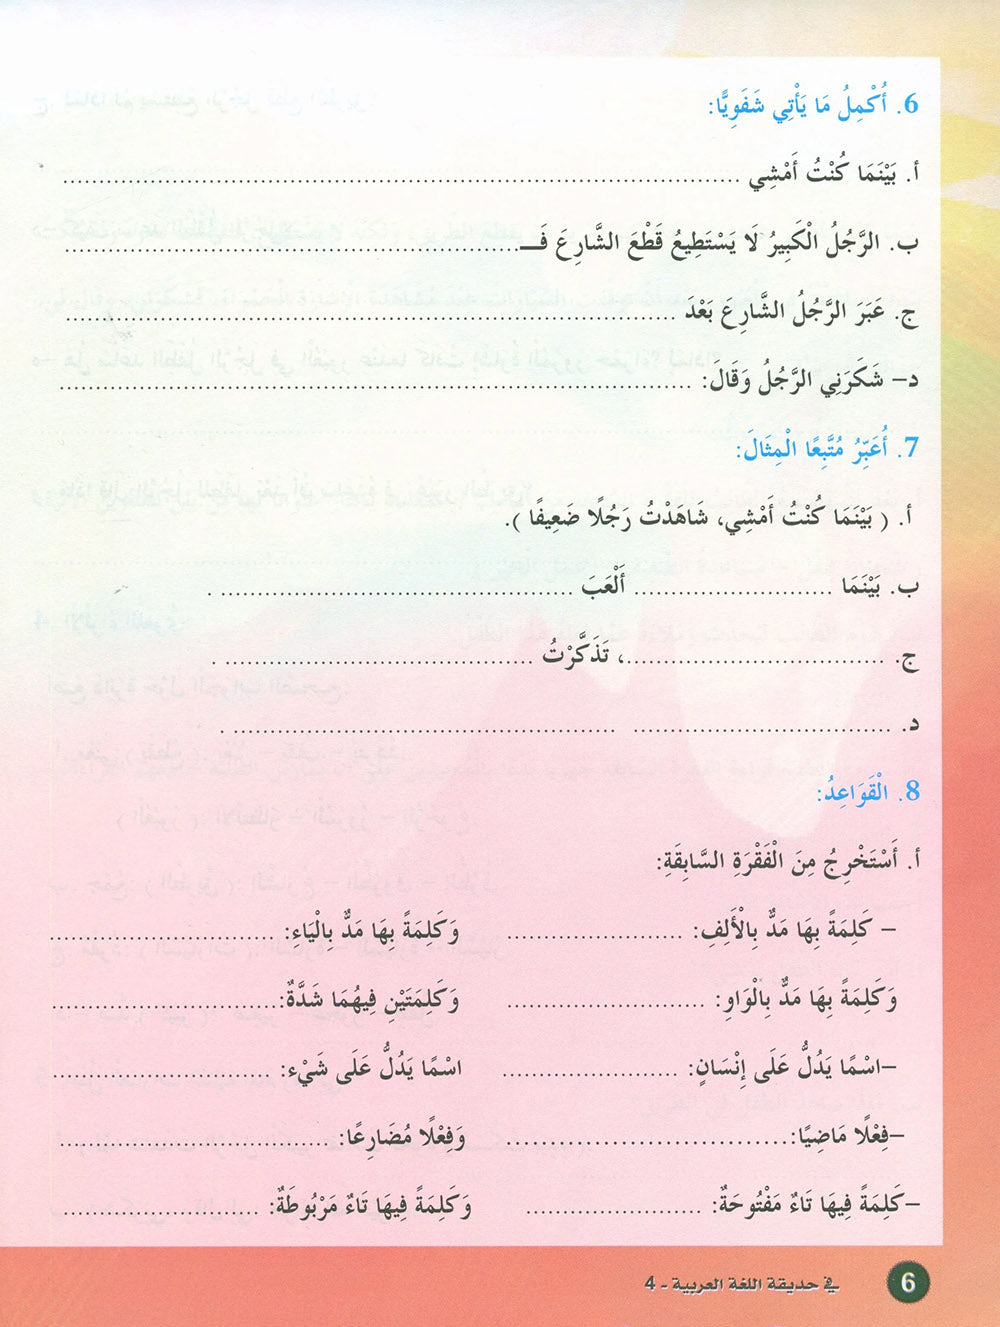 6. أُكْمِلُ مَا يَأْتِي شَفَوِيًّا:
أ. بَيْنَمَا كُنْتُ أَمْشِي ............................................
ب. الرَّجُلُ الْكَبِيرُ لَا يَسْتَطِيعُ قَطْعَ الشَّارِعَ فَـ............................................
ج. عَبَرَ الرَّجُلُ الشَّارِعَ بَعْدَ ............................................
د– شَكَرَنِي الرَّجُلُ وَقَالَ: ............................................
7. أُعَبِّرُ مُتَّبِعًا الْمِثَالَ:
أ. ( بَيْنَمَا كُنْتُ أَمْشِي، شَاهَدْتُ رَجُلًا ضَعِيفًا ).
ب. بَيْنَمَا ........................ أَلْعَبَ ............................................ .
ج. ................................، تَذَكَّرْتُ ...................................... .
د. ................................ ............................................ .
8. الْقَوَاعِدُ:
أ. أَسْتَخْرِجُ مِنَ الْفَقْرَةِ السَّابِقَةِ:
– كَلِمَةً بِهَا مَدٌّ بِالْأَلِفِ: ........................ وَكَلِمَةً بِهَا مَدٌّ بِالْيَاءِ: ................................
وَكَلِمَةً بِهَا مَدٌّ بِالْوَاوِ: ........................ وَكَلِمَتَيْنِ فِيهُمَا شَدَّةٌ: ................................
–اسْمًا يَدُلُّ عَلَى إِنْسَانٍ: ........................ اسْمًا يَدُلُّ عَلَى شَيْء: ................................
–فِعْلًا مَاضِيًا: ................................ وَفِعْلًا مُضَارِعًا: ................................
–كَلِمَةً فِيهَا تَاءٌ مَفْتُوحَةٌ: ........................ وَكَلِمَةً فِيهَا تَاءٌ مَرْبُوطَةٌ: ........................
6 في حديقة اللغة العربية - 4